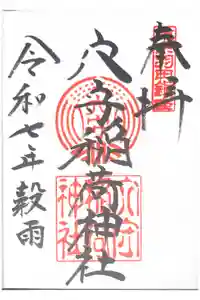 奉拝
穴守稲荷神社
令和七年穀雨
穴守
神社